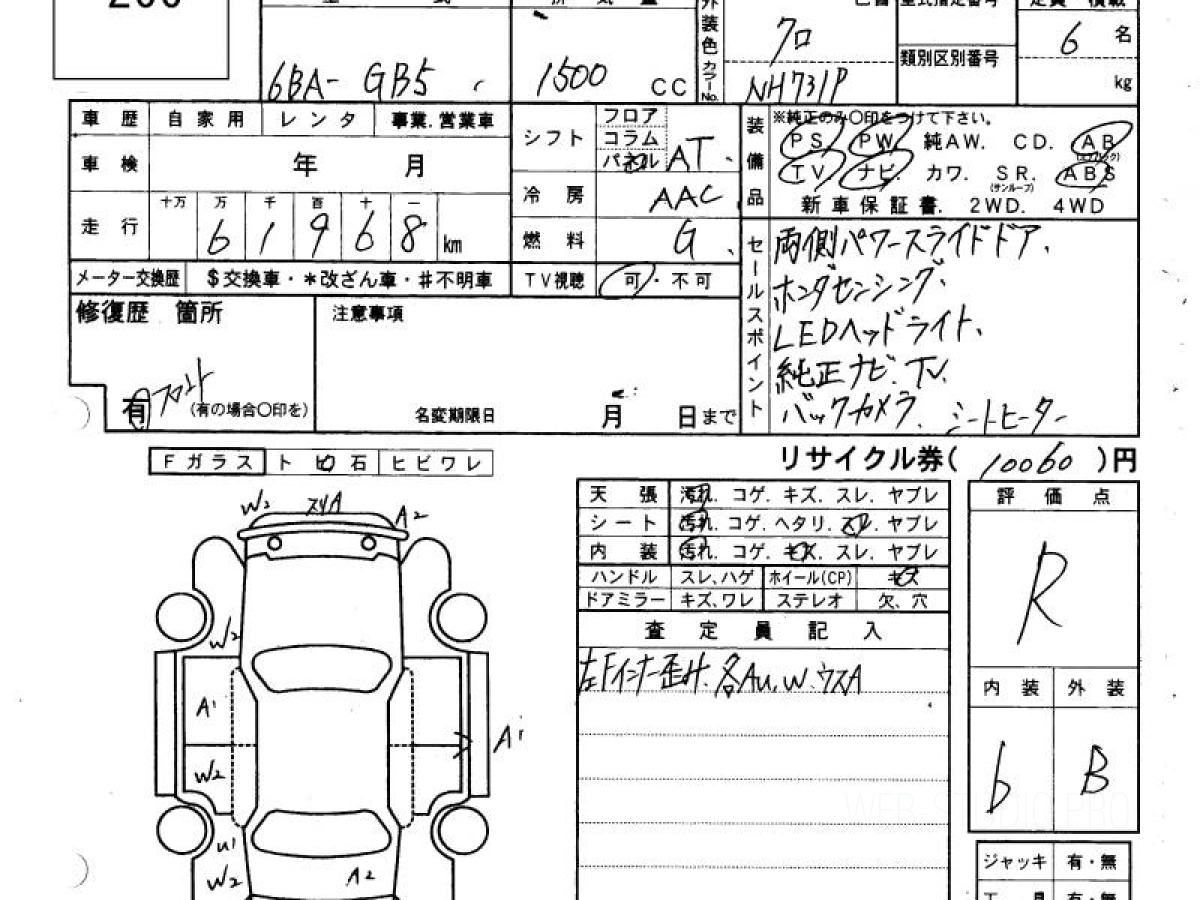 200
型 式 排 気 量
外装色 カラーNo.
色替
型式指定番号
定員 積載
6BA- GB5
1500 CC
クロ
NH731P
類別区別番号
6 名
kg
車歴 自家用 レンタ 事業.営業車
車検 年 月
走行 十万 万 千 百 十 一
6 1 9 6 8 km
シフト フロア コラム パネル AT
冷房 AAC
燃料 G
装備品
※純正のみ〇印をつけて下さい。
PS PW 純AW. CD. AB (エアバック)
TV ナビ. カワ. SR. (サンルーフ) ABS
新車保証書. 2WD. 4WD
メーター交換歴 $交換車・*改ざん車・#不明車
TV視聴 可・不可
セールスポイント
両側パワースライドドア、
ホンダセンシング、
LEDヘッドライト、
純正ナビ、TV、
バックカメラ、シートヒーター
修復歴 箇所
有 フロント (有の場合〇印を)
注意事項
名変期限日 月 日まで
Fガラス トビ石 ヒビワレ
リサイクル券( 10060 )円
W2 スリA A2
W2
A1
W2
A1
U1
W2
A2
天張 汚れ. コゲ. キズ. スレ. ヤブレ
シート 汚れ. コゲ. ヘタリ. スレ. ヤブレ
内装 汚れ. コゲ. キズ. スレ. ヤブレ
ハンドル スレ、ハゲ ホイール(CP) キズ
ドアミラー キズ、ワレ ステレオ 欠、穴
査定員記入
左Fインナー歪み、各AU、W、ウスA
評価点
R
内装 外装
b B
ジャッキ 有・無
工具 有・無
WEB STUDIO PRO